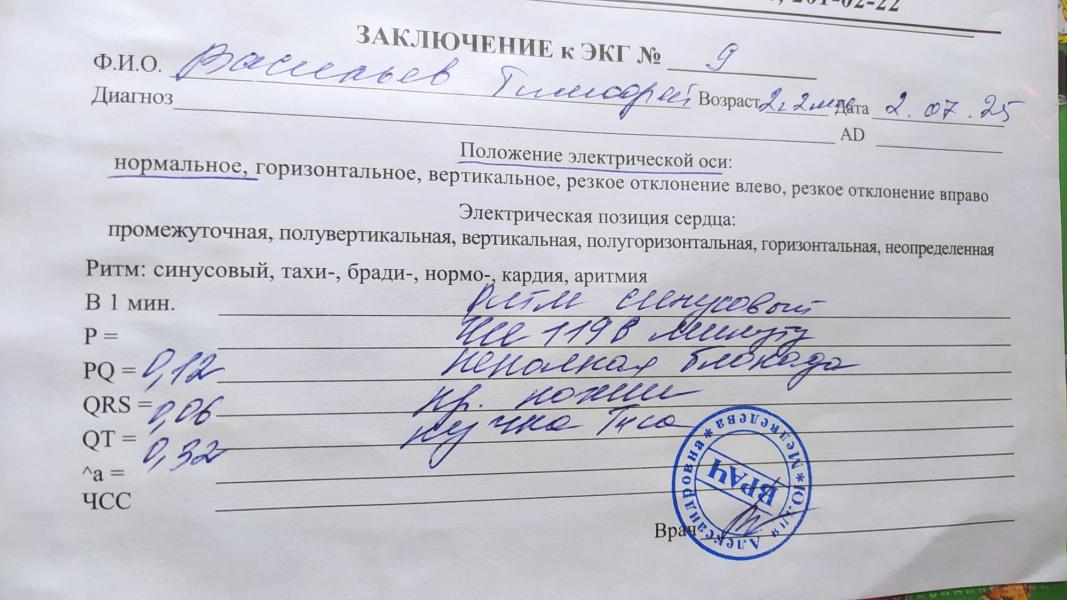 201-02-22
ЗАКЛЮЧЕНИЕ к ЭКГ № 9
Ф.И.О. Васильев Тимофей Возраст 2г 2мес Дата 2.07.25
Диагноз AD
Положение электрической оси:
нормальное, горизонтальное, вертикальное, резкое отклонение влево, резкое отклонение вправо
Электрическая позиция сердца:
промежуточная, полувертикальная, вертикальная, полугоризонтальная, горизонтальная, неопределенная
Ритм: синусовый, тахи-, бради-, нормо-, кардия, аритмия
В 1 мин. Ритм синусовый
P = ЧСС 119 в минуту
PQ = 0,12 неполная блокада
QRS = 0,06 пр. ножки
QT = 0,32 пучка Гиса
^a =
ЧСС
Врач
Медведева * Юлия Александровна *
ВРАЧ